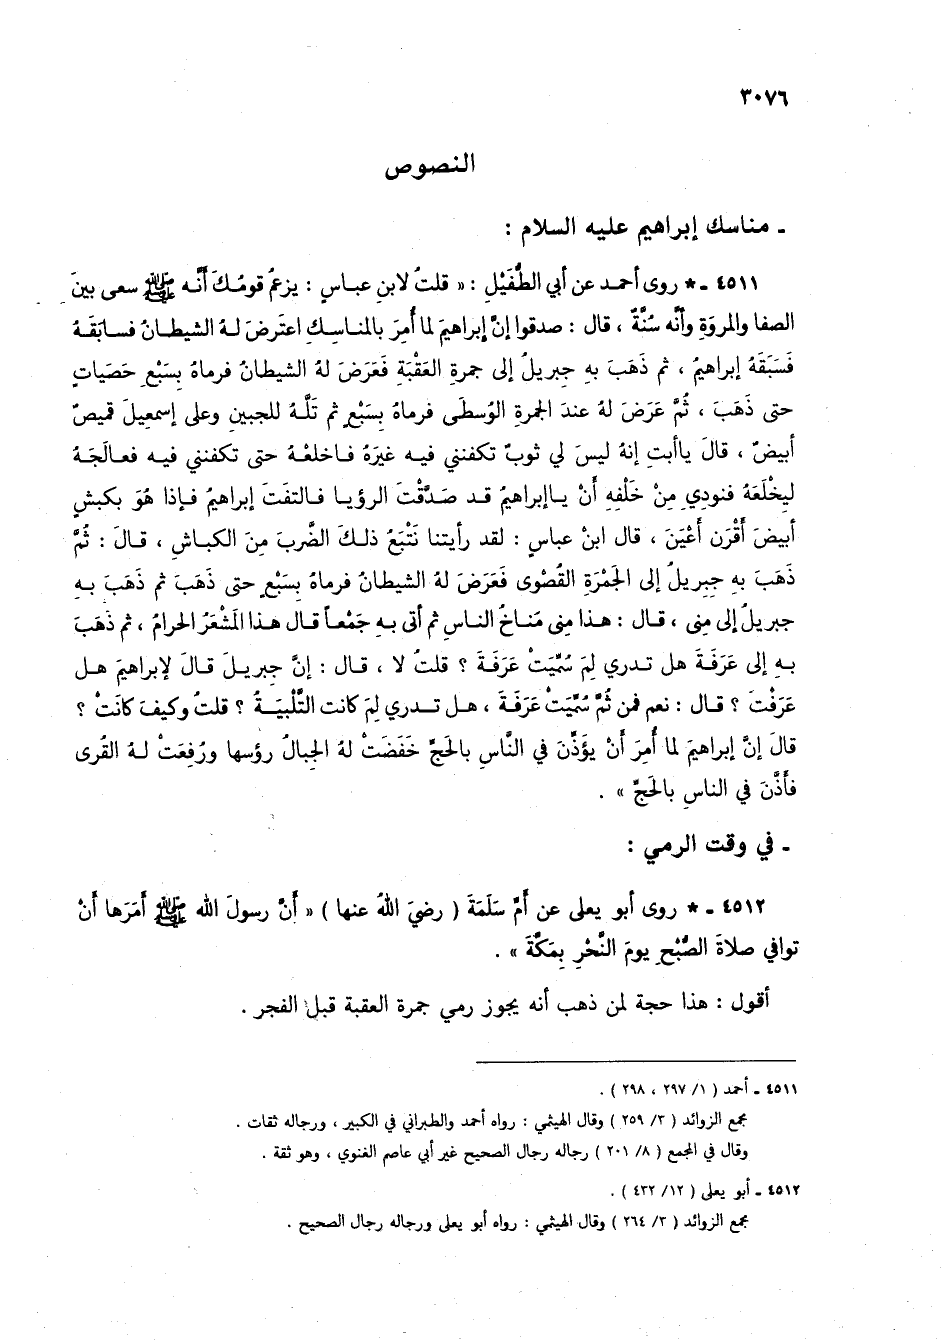 ٣٠٧٦
النصوص
ـ مناسك إبراهيم عليه السلام :
٤٥١١ ـ * روى أحمد عن أبي الطُّفَيْلِ : « قلتُ لابنِ عباسٍ : يزعمُ قومُكَ أنَّه ﷺ سعى بينَ
الصفا والمروَةِ وأنَّه سُنَّةٌ ، قال : صدقوا إنَّ إبراهيمَ لما أُمِرَ بالمناسِكِ اعترَضَ لهُ الشيطانُ فسابَقَهُ
فَسَبَقَهُ إبراهيمُ ، ثم ذَهَبَ بهِ جبريلُ إلى جمرةِ العَقْبَةِ فَعَرَضَ لهُ الشيطانُ فرماهُ بِسَبْعِ حَصَياتٍ
حتى ذَهَبَ ، ثُمَّ عَرَضَ لهُ عندَ الجمرةِ الوُسطَى فرماهُ بِسَبْعٍ ثم تَلَّهُ للجبينِ وعلى إسمعيلَ قميصٌ
أبيضٌ ، قالَ ياأبتِ إنهُ ليسَ لي ثوبٌ تكفنني فيه غيرَهُ فاخلعْهُ حتى تكفنني فيه فعالَجَهُ
ليخْلَعَهُ فنودِي مِنْ خَلْفِهِ أنْ ياإبراهيمُ قد صَدَّقْتَ الرؤيا فالتفَتَ إبراهيمُ فإذا هُوَ بكبشٍ
أبيضَ أَقْرَنَ أعْيَنَ ، قال ابنُ عباسٍ : لقد رأيتنا نَتْبَعُ ذلكَ الضَّربَ مِنَ الكباشِ ، قالَ : ثُمَّ
ذَهَبَ بهِ جبريلُ إلى الجَمْرَةِ القُصْوى فَعَرَضَ لهُ الشيطانُ فرماهُ بِسَبْعٍ حتى ذَهَبَ ثم ذَهَبَ بهِ
جبريلُ إلى مِنى ، قال : هذا مِنى مَناخُ الناسِ ثم أتى بهِ جَمْعاً قال هذا المَشْعَرُ الحرامُ ، ثم ذَهَبَ
بهِ إلى عَرَفَةَ هل تدري لِمَ سُمِّيَتْ عَرَفَةَ ؟ قلتُ لا ، قال : إنَّ جبريلَ قالَ لإبراهيمَ هل
عَرَفْتَ ؟ قال : نعم فمن ثُمَّ سُمِّيَتْ عَرَفَةَ ، هل تدري لِمَ كانت التَّلْبِيَةُ ؟ قلتُ وكيفَ كانَتْ ؟
قالَ إنَّ إبراهيمَ لما أُمِرَ أنْ يؤَذِّنَ في النَّاسِ بالحَجِّ خَفَضَتْ لهُ الجبالُ رؤسها ورُفِعَتْ لهُ القُرى
فأَذَّنَ في الناسِ بالحَجِّ » .
ـ في وقت الرمي :
٤٥١٢ ـ * روى أبو يعلى عن أُمِّ سَلَمَةَ ( رضيَ اللهُ عنها ) « أنَّ رسولَ الله ﷺ أمَرَها أنْ
توافي صلاةَ الصُّبْحِ يومَ النَّحْرِ بِمَكَّةَ » .
أقول : هذا حجة لمن ذهب أنه يجوز رمي جمرة العقبة قبل الفجر .
٤٥١١ ـ أحمد ( ١/ ٢٩٧ ، ٢٩٨ ) .
مجمع الزوائد ( ٣/ ٢٥٩ ) وقال الهيثمي : رواه أحمد والطبراني في الكبير ، ورجاله ثقات .
وقال في المجمع ( ٨/ ٢٠١ ) رجاله رجال الصحيح غير أبي عاصم الغنوي ، وهو ثقة .
٤٥١٢ ـ أبو يعلى ( ١٢/ ٤٣٢ ) .
مجمع الزوائد ( ٣/ ٢٦٤ ) وقال الهيثمي : رواه أبو يعلى ورجاله رجال الصحيح .